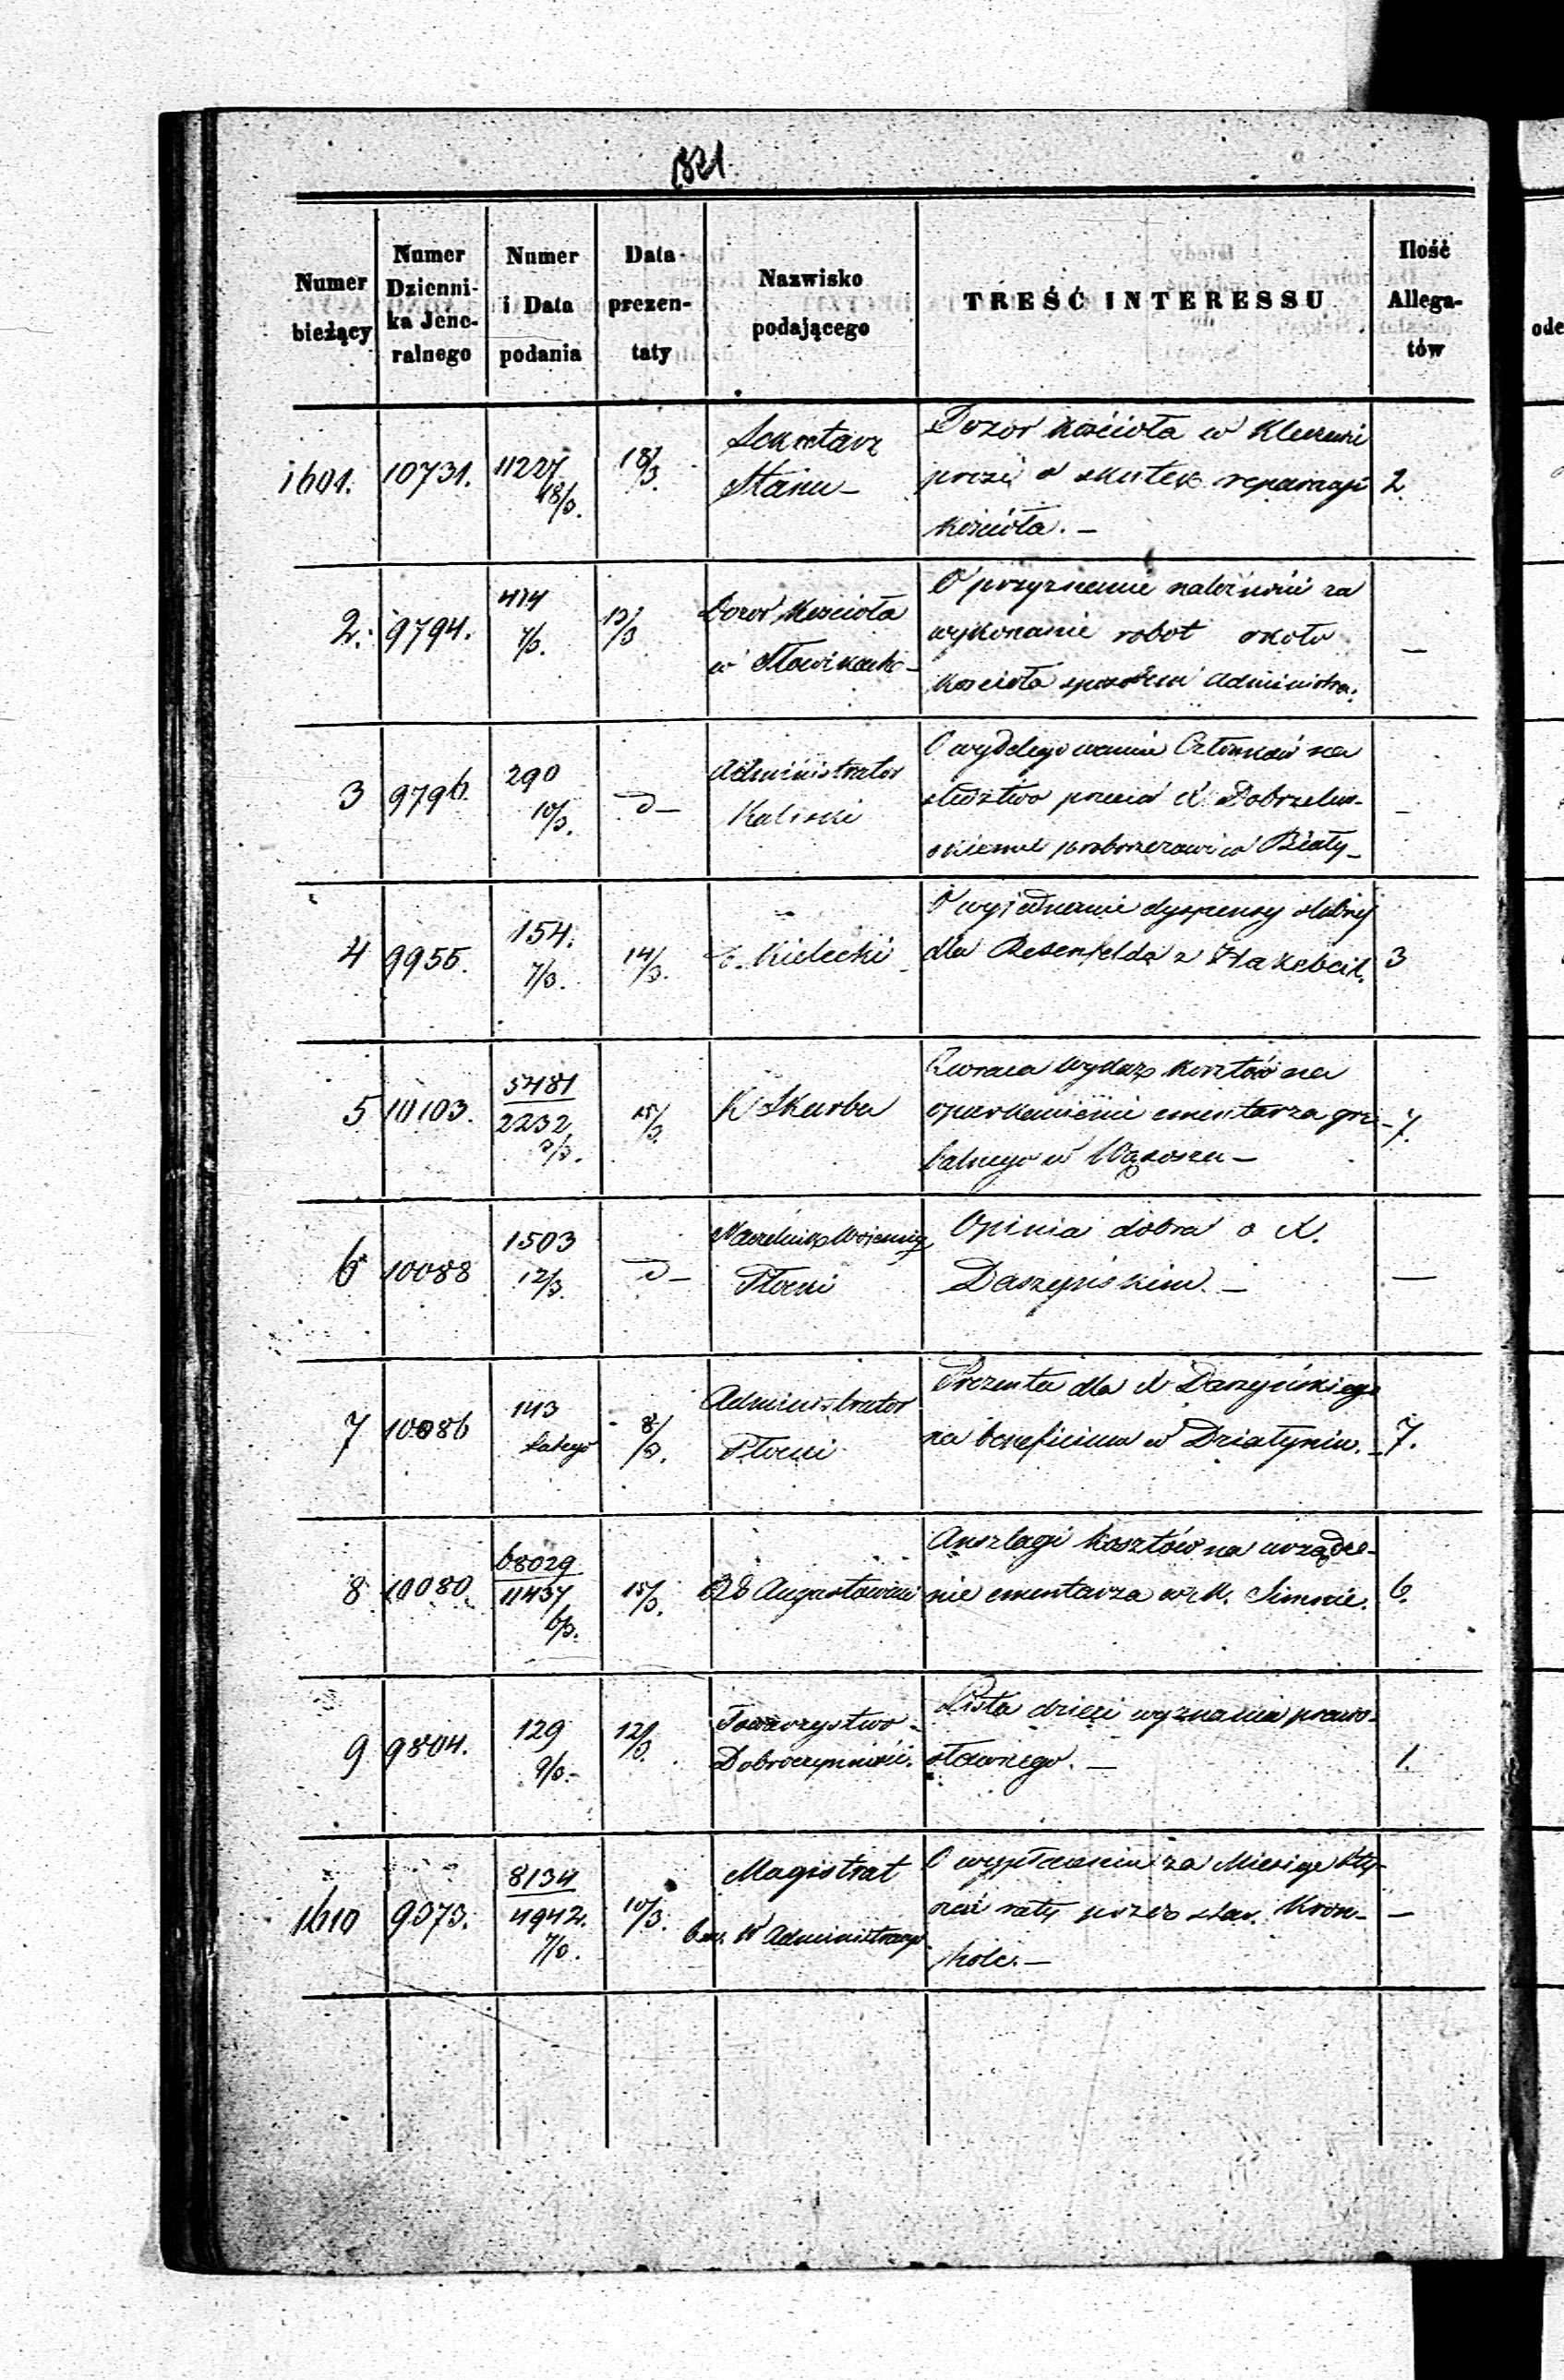 1821
Numer
bieżący
Numer
Dzienni-
ka Jene-
ralnego
Numer
i Data
podania
Data
prezen-
taty
Nazwisko
podającego
TREŚĆ INTERESSU
Ilość
Allega-
tów
1601. 10731. 11227 18/3. 18/3.
Sekretarz
Stanu
Dozor kościoła w
prosi o skutek reparacyi
kościoła. —
2.
2. 9794. 474 7/3. 13/3
Dozór Kościoła
w
O przyznanie należności za
wykonanie robot około
kościoła sposobem administra:
—
3 9796. 290 10/3. D—
Administrator
Kaliski
O wydelegowanie Członków na
śledztwo przeciw X
proboszczowi w Biały—
—
4 9955. 154. 7/3. 14/3.
Kielecki
O wyjednanie dyspensy ślubnej
dla Rosenfelda z
3
5 10103. 5481 2232 3/3. 15/3.
K Skarbu
Zwraca wykaz kosztów na
oparkanienie cmentarza grze-
balnego w Wąsoszu —
7.
6 10088 1503 12/3. D—
Naczelnik Wojenny
Płocki
Opinia dobra o X.
Daszyńskim. —
—
7 10086 143 Lutego 8/3.
Administrator
Płocki
Prezenta dla X Daszyńskiego
na beneficium w Działyniu. —
7.
8 10080. 68029 11437 6/3. 15/3.
Augustowski
Anszlagi kosztów na urządze-
nie cmentarza w Simnie.
6.
9 9804. 129 9/3. 12/3.
Towarzystwo
Dobroczynności.
Lista dzieci wyznania prawo-
sławnego. —
1.
1610 9373. 8134 4942. 7/3. 10/3.
Magistrat
Administracyi
O wypłacenie za Miesiąc Sty-
czeń raty przez Kron-
—
ode